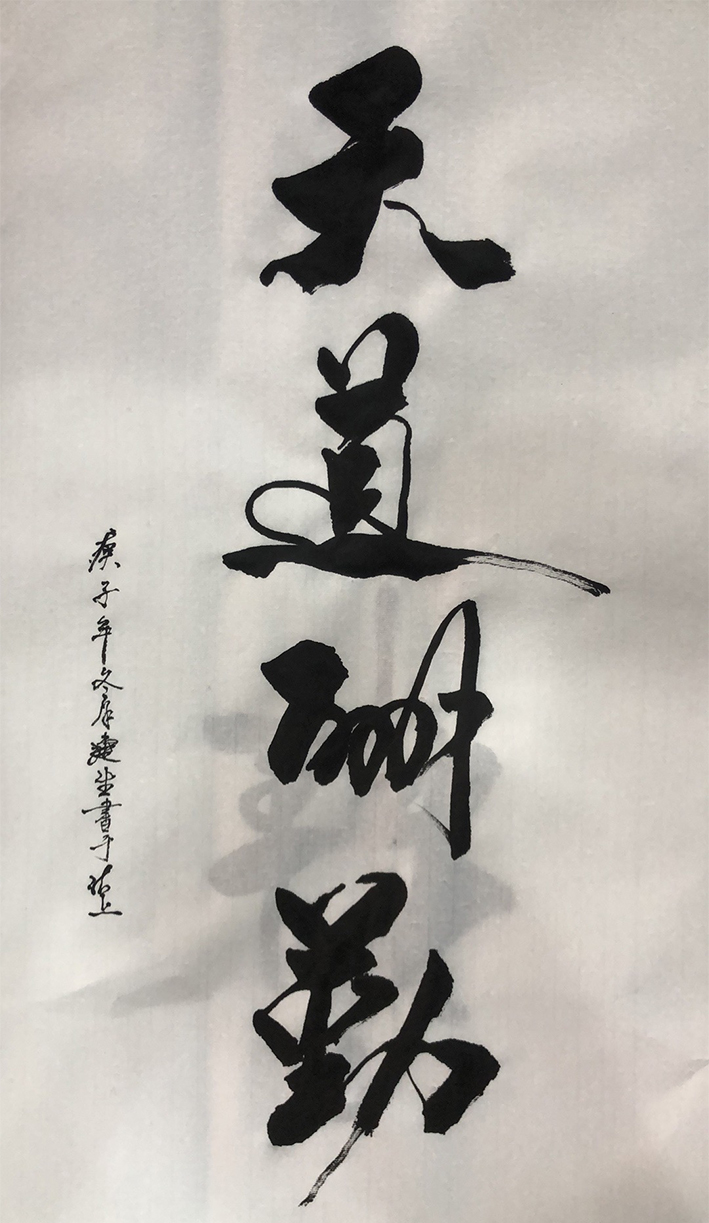 天道酬勤
庚子年冬月建生書于